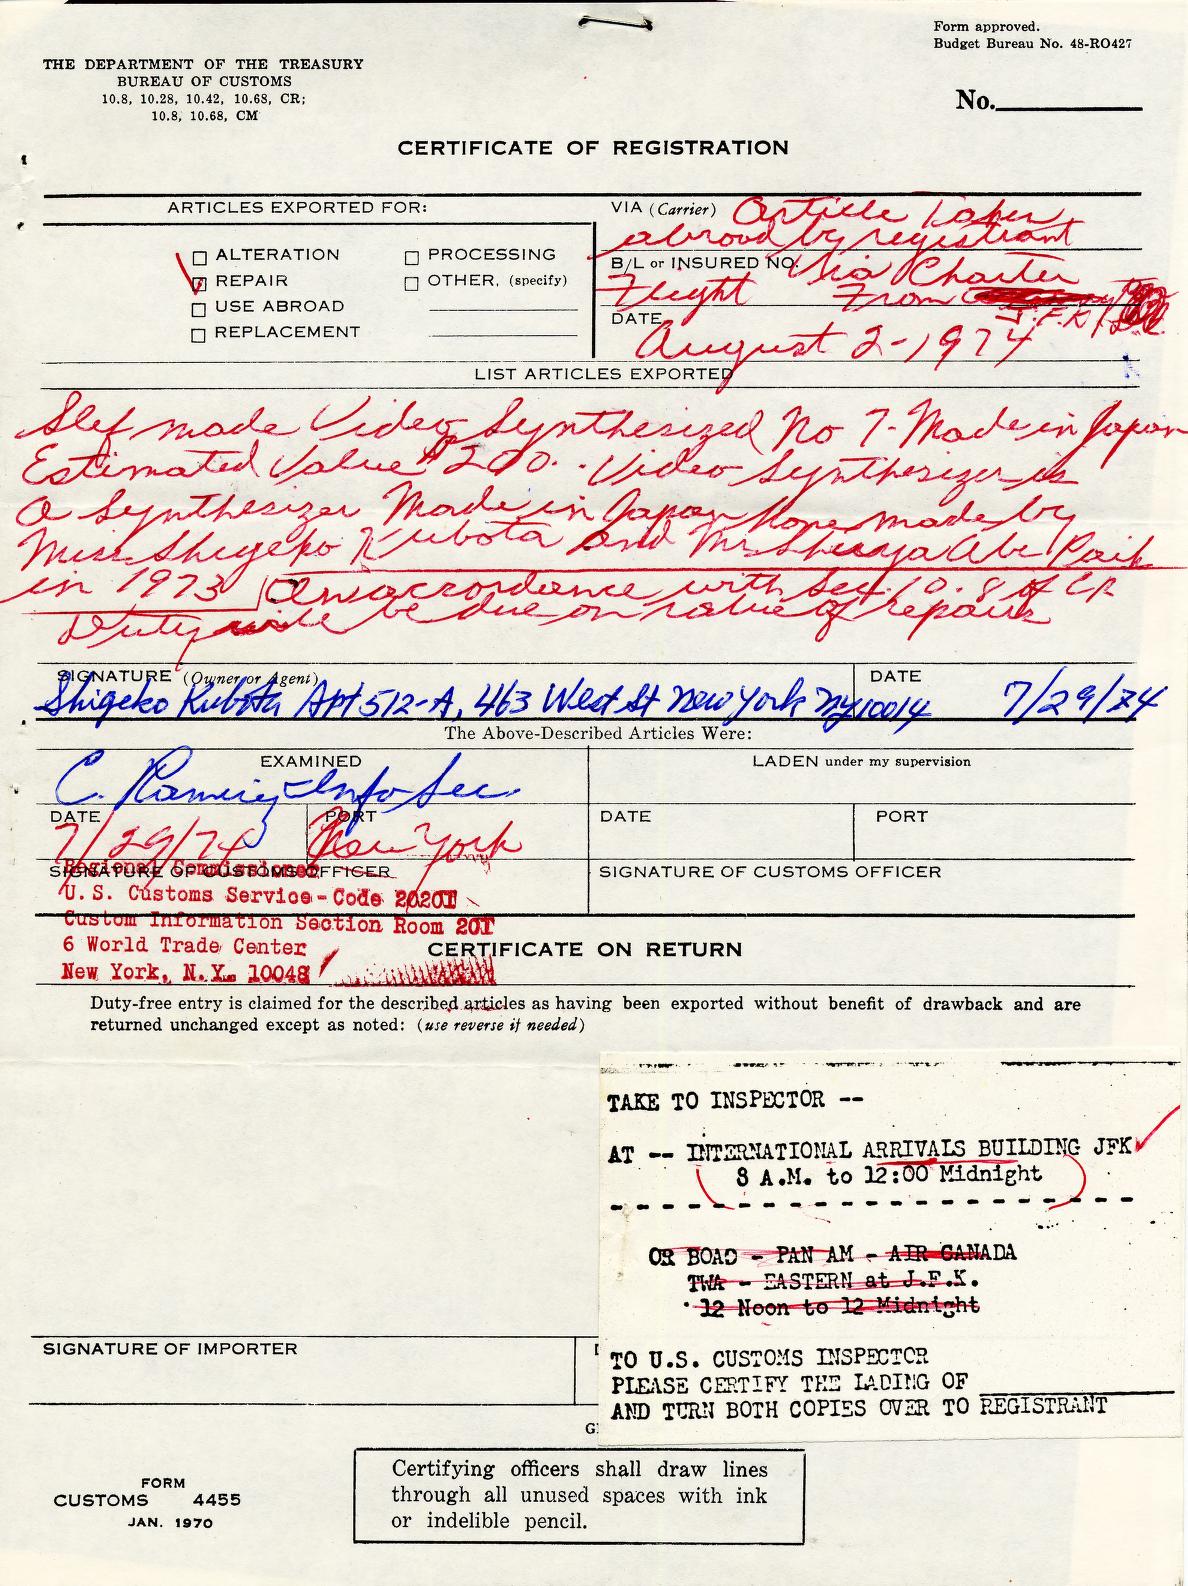 Form approved.
Budget Bureau No. 48-RO427
THE DEPARTMENT OF THE TREASURY
BUREAU OF CUSTOMS
10.8, 10.28, 10.42, 10.68, CR;
10.8, 10.68, CM
No.
CERTIFICATE OF REGISTRATION
ARTICLES EXPORTED FOR:
ALTERATION
PROCESSING
REPAIR
OTHER, (specify)
USE ABROAD
REPLACEMENT
VIA (Carrier) Article Taken
abroad by registrant
B/L or INSURED NO. Via Charter
Flight From
J.F.K.
DATE
August 2-1974
LIST ARTICLES EXPORTED
Slef made Video Synthesized No 7- Made in Japan
Estimated Value $200. - Video Synthesizer is
a Synthesizer Made in Japan home made by
Miss Shigeko Kubota and Mr Shuya Abe Paik
in 1973 In accordance with Sec. 10.8 of CR
Duty will be due on value of repairs
SIGNATURE (Owner or Agent)
DATE
Shigeko Kubota Apt 512-A, 463 West St New York NY 10014 7/29/74
The Above-Described Articles Were:
EXAMINED
LADEN under my supervision
C. Ramirez Info Sec.
DATE
PORT
DATE
PORT
7/29/74 New York
Regional Commissioner
SIGNATURE OF CUSTOMS OFFICER
SIGNATURE OF CUSTOMS OFFICER
U.S. Customs Service - Code 2020T
Custom Information Section Room 20T
6 World Trade Center
New York, N.Y. 10048
CERTIFICATE ON RETURN
Duty-free entry is claimed for the described articles as having been exported without benefit of drawback and are
returned unchanged except as noted: (use reverse if needed)
TAKE TO INSPECTOR --
AT -- INTERNATIONAL ARRIVALS BUILDING JFK
8 A.M. to 12:00 Midnight
OR BOAD - PAN AM - AIR CANADA
TWA - EASTERN at J.F.K.
12 Noon to 12 Midnight
TO U.S. CUSTOMS INSPECTOR
PLEASE CERTIFY THE LADING OF
AND TURN BOTH COPIES OVER TO REGISTRANT
SIGNATURE OF IMPORTER
Certifying officers shall draw lines
through all unused spaces with ink
or indelible pencil.
FORM
CUSTOMS 4455
JAN. 1970